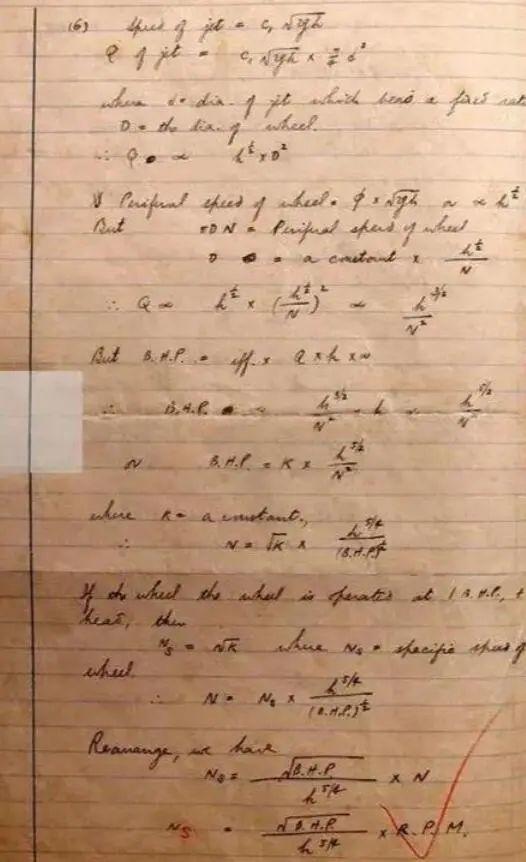 (6) Speed of jet = c, √2gh
Q of jet = c, √2gh × π/4 d²
where d = dia. of jet which bears a fixed
D = the dia. of wheel.
∴ Q ∝ h^½ × D²
Perifiral speed of wheel = φ × √2gh or ∝ h^½
But πDN = Perifiral speed of wheel
D = a constant × h^½/N
∴ Q ∝ h^½ × (h^½/N)² ∝ h^3/2/N²
But B.H.P. = eff. × Q × h × w
∴ B.H.P. ∝ h^3/2/N² × h ∝ h^5/2/N²
or B.H.P. = K × h^5/2/N²
where K = a constant.,
∴ N = √K × h^5/4/(B.H.P.)^½
If the wheel the wheel is operated at 1 B.H.P., +
head, then
Ns = √K where Ns = specific speed of
wheel.
∴ N = Ns × h^5/4/(B.H.P.)^½
Rearrange, we have
Ns = √B.H.P./h^5/4 × N
Ns = √B.H.P/h^5/4 × R.P.M.